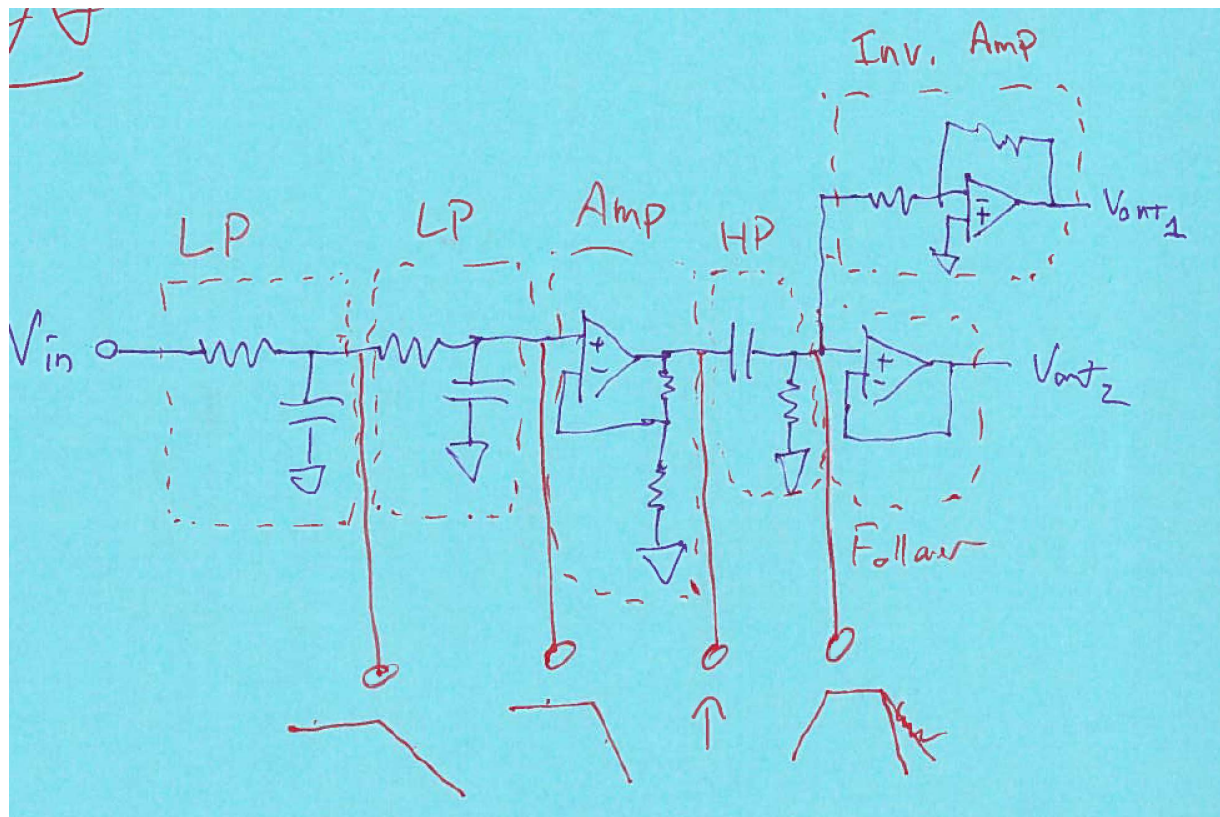 Inv. Amp
LP
LP
Amp
HP
Vout1
Vin
Vout2
Follower